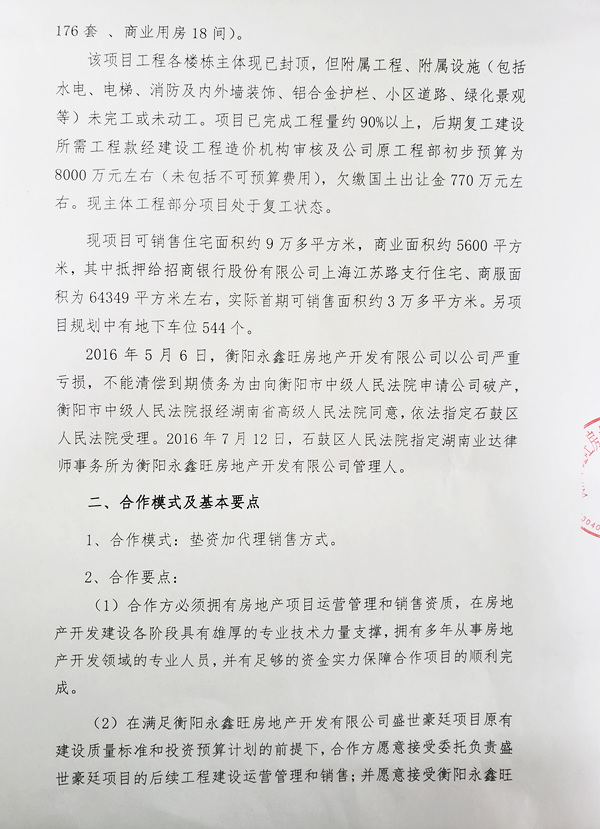 176 套 、商业用房 18 间）。
该项目工程各楼栋主体现已封顶，但附属工程、附属设施（包括
水电、电梯、消防及内外墙装饰、铝合金护栏、小区道路、绿化景观
等）未完工或未动工。项目已完成工程量约 90%以上，后期复工建设
所需工程款经建设工程造价机构审核及公司原工程部初步预算为
8000 万元左右（未包括不可预算费用），欠缴国土出让金 770 万元左
右。现主体工程部分项目处于复工状态。
现项目可销售住宅面积约 9 万多平方米，商业面积约 5600 平方
米，其中抵押给招商银行股份有限公司上海江苏路支行住宅、商服面
积为 64349 平方米左右，实际首期可销售面积约 3 万多平方米。另项
目规划中有地下车位 544 个。
2016 年 5 月 6 日，衡阳永鑫旺房地产开发有限公司以公司严重
亏损，不能清偿到期债务为由向衡阳市中级人民法院申请公司破产，
衡阳市中级人民法院报经湖南省高级人民法院同意，依法指定石鼓区
人民法院受理。2016 年 7 月 12 日，石鼓区人民法院指定湖南业达律
师事务所为衡阳永鑫旺房地产开发有限公司管理人。
二、合作模式及基本要点
1、合作模式：垫资加代理销售方式。
2、合作要点：
（1）合作方必须拥有房地产项目运营管理和销售资质，在房地
产开发建设各阶段具有雄厚的专业技术力量支撑，拥有多年从事房地
产开发领域的专业人员，并有足够的资金实力保障合作项目的顺利完
成。
（2）在满足衡阳永鑫旺房地产开发有限公司盛世豪廷项目原有
建设质量标准和投资预算计划的前提下，合作方愿意接受委托负责盛
世豪廷项目的后续工程建设运营管理和销售；并愿意接受衡阳永鑫旺